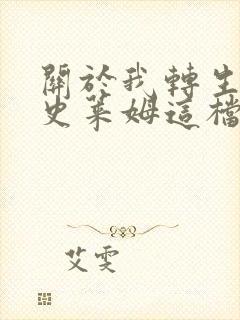 關於我轉生
史萊姆這檔
艾雯